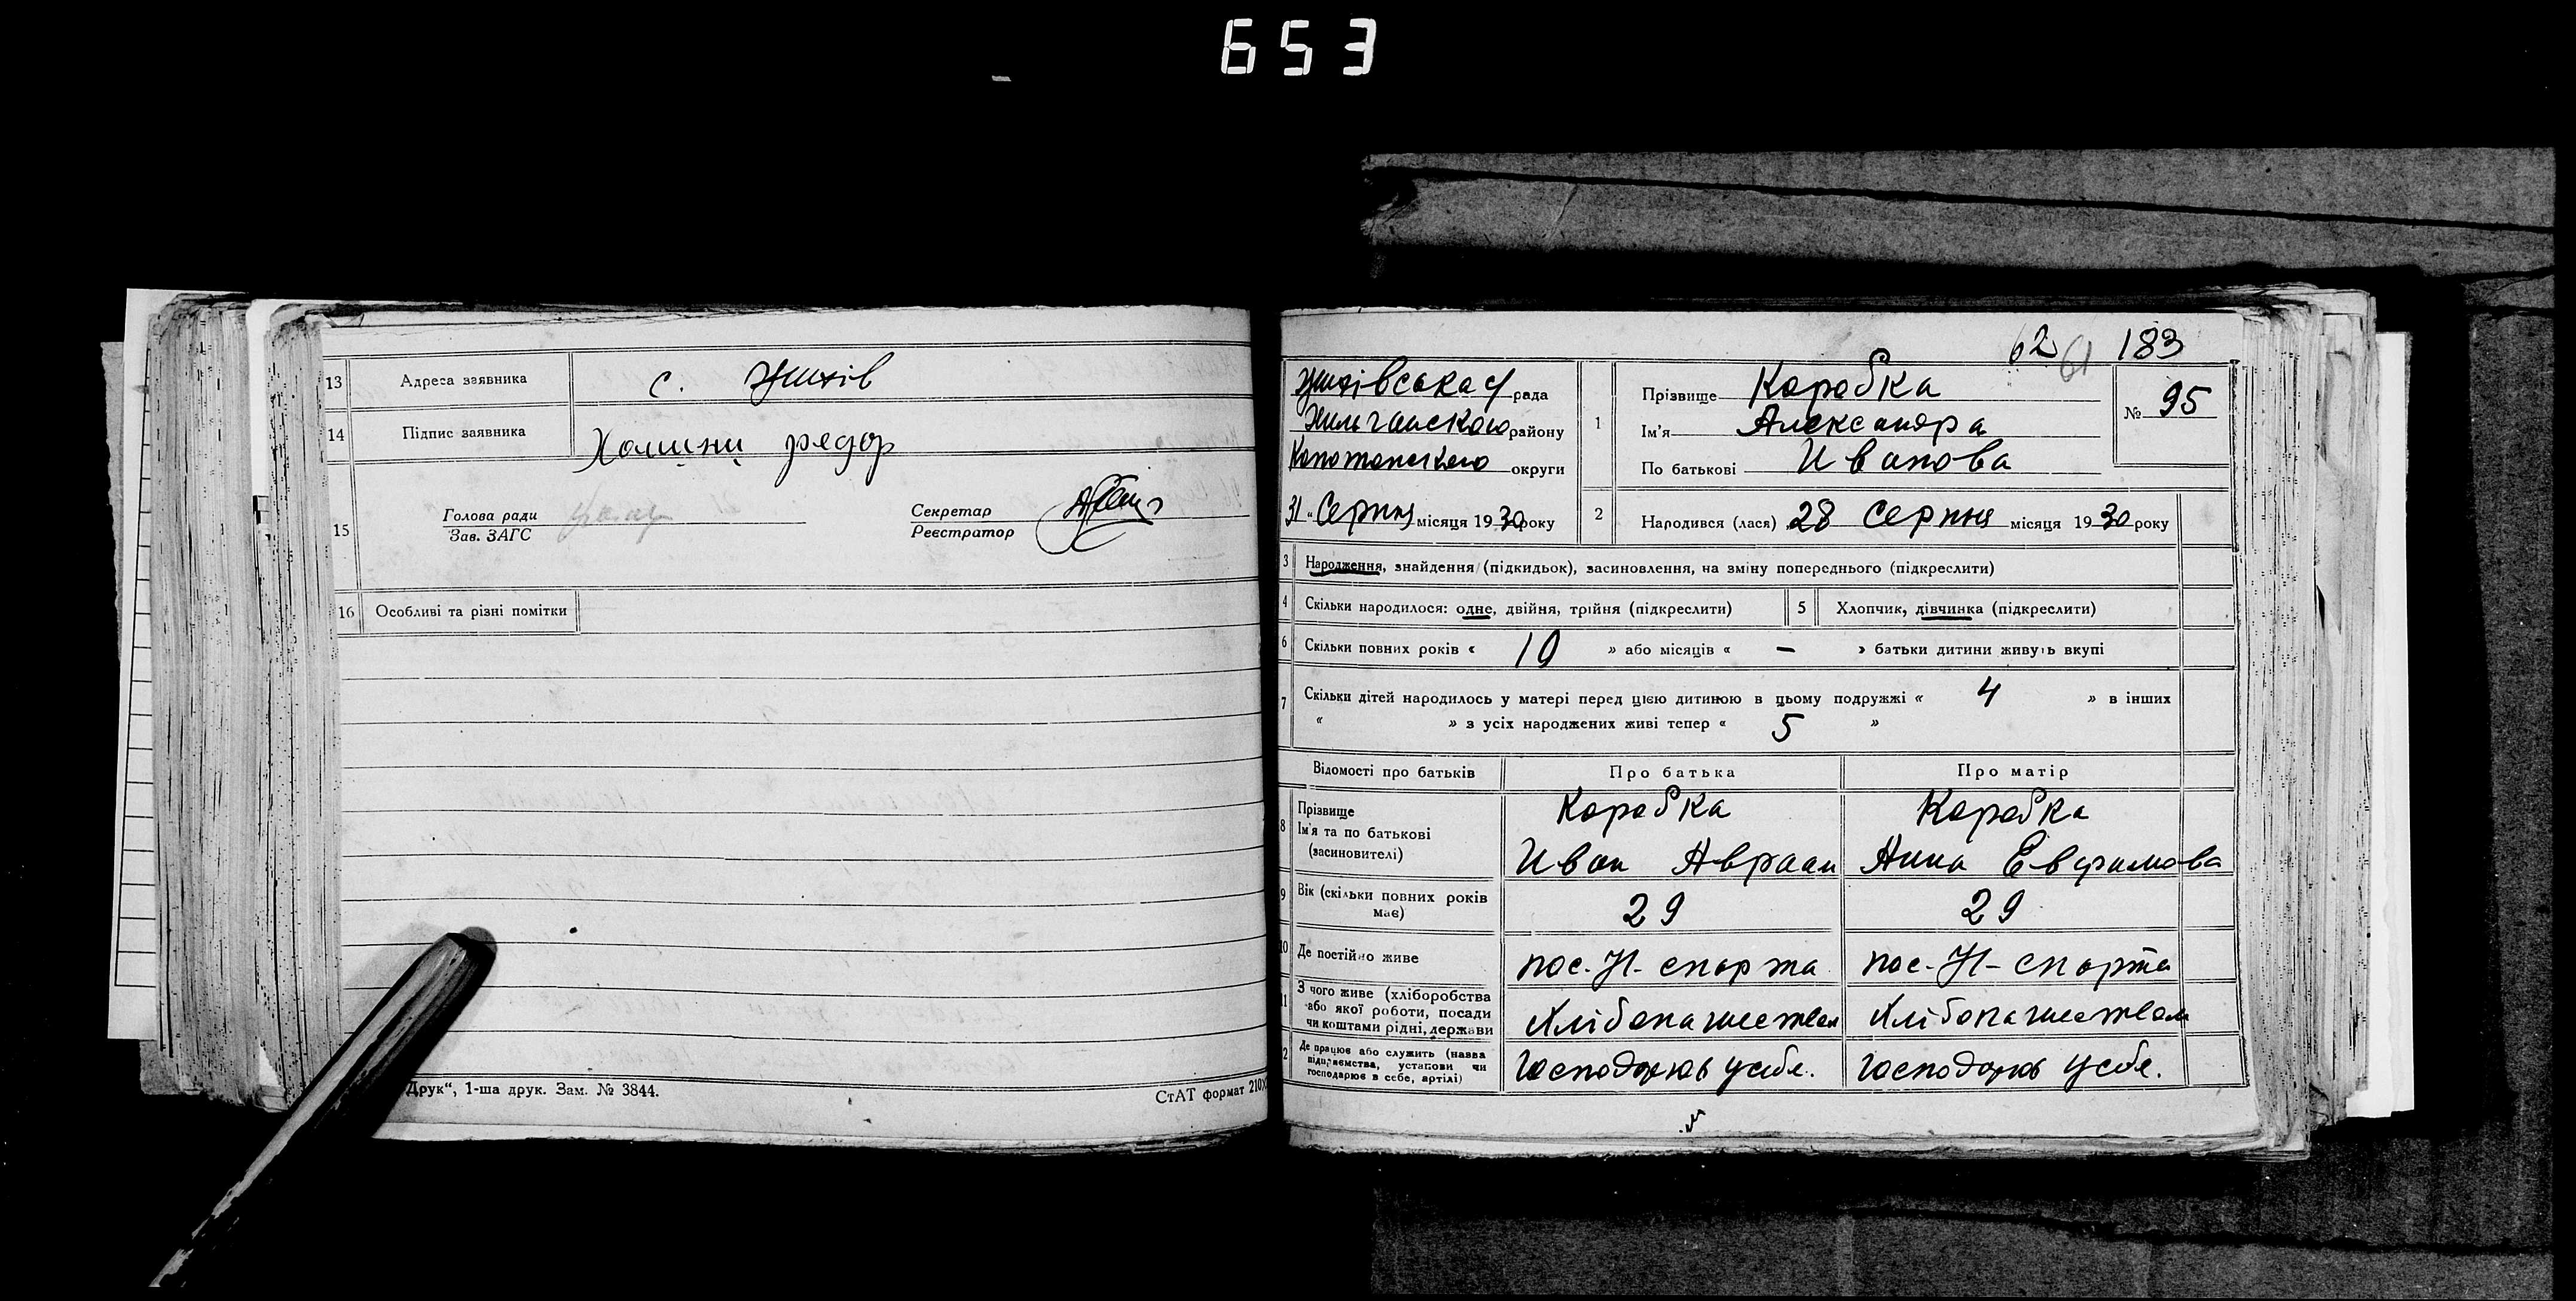 653
13 Адреса заявника с. Жихів
14 Підпис заявника
15 Голова ради
Зав. ЗАГС
Секретар
Реєстратор
16 Особливі та різні помітки
Друк“, 1-ша друк. Зам. № 3844.
СтАТ формат 210
62 61 183
Жихівська с/рада
Хильчанского району
Конотопского округи
31 „Серпня місяця 1930 року
1 Прізвище Коробка
Ім'я Александра
По батькові Иванова
№ 95
2 Народився (лася) 28 Серпня місяця 1930 року
3 Народження, знайдення (підкидьок), засиновлення, на зміну попереднього (підкреслити)
4 Скільки народилося: одне, двійня, трійня (підкреслити) 5 Хлопчик, дівчинка (підкреслити)
6 Скільки повних років « 10 » або місяців « – » батьки дитини живуть вкупі
7 Скільки дітей народилось у матері перед цією дитиною в цьому подружжі « 4 » в інших
« » з усіх народжених живі тепер « 5 »
Відомості про батьків Про батька Про матір
8 Прізвище Коробка Коробка
Ім'я та по батькові
(засиновителі) Иван Авраам Анна Евфимова
9 Вік (скільки повних років
має) 29 29
10 Де постійно живе пос. Н- спарта пос. Н- спарта
11 З чого живе (хліборобства
або якої роботи, посади
чи коштами рідні, держави Хлібопашеством Хлібопашеством
12 Де працює або служить (назва
підприємства, установи чи
господарює в себе, артілі) Господорюв усебе. Господорюв усебе.